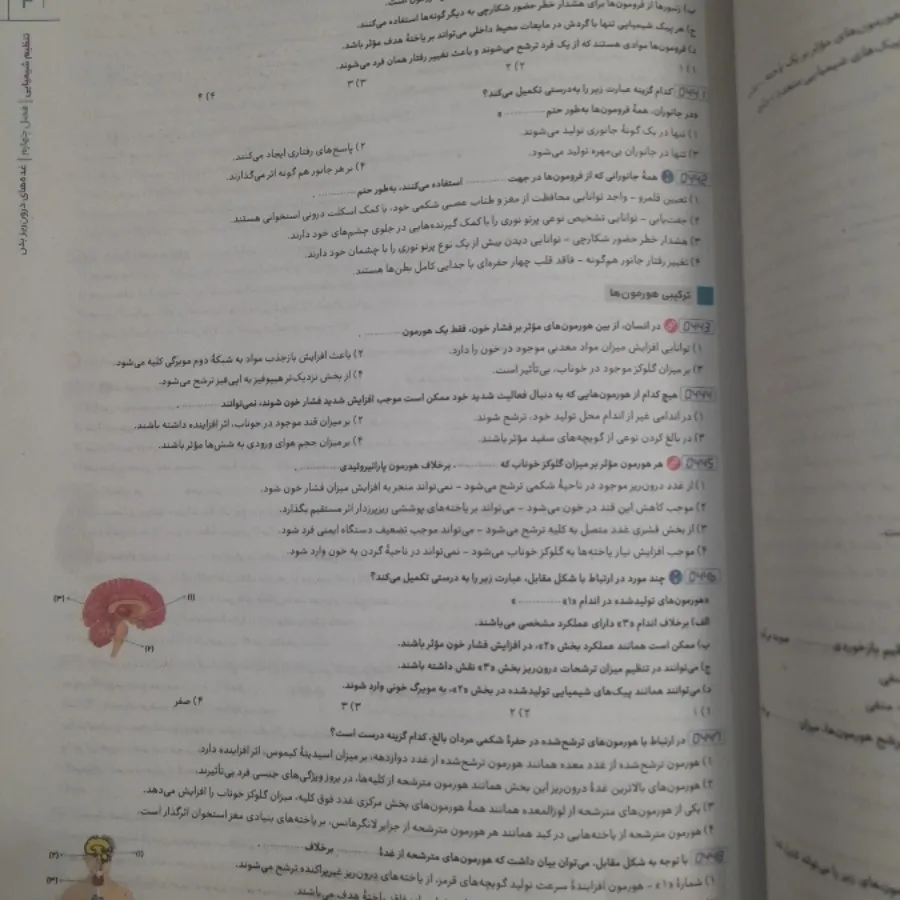 تنظیم شیمیایی | فصل چهارم | غده‌های درون‌ریز بدن
ب) زنبورها از فرومون‌ها برای هشدار خطر حضور شکارچی به دیگر گونه‌ها استفاده می‌کنند.
ج) هر پیک شیمیایی تنها با گردش در مایعات محیط داخلی می‌تواند بر یاختهٔ هدف مؤثر باشد.
د) فرومون‌ها موادی هستند که از یک فرد ترشح می‌شوند و باعث تغییر رفتار همان فرد می‌شوند.
۱) ۱ ۲) ۲ ۳) ۳ ۴) ۴
۵۴۴۱ کدام گزینه عبارت زیر را به‌درستی تکمیل می‌کند؟
«در جانوران، همهٔ فرومون‌ها به‌طور حتم ............ »
۱) تنها در یک گونهٔ جانوری تولید می‌شوند. ۲) پاسخ‌های رفتاری ایجاد می‌کنند.
۳) تنها در جانوران بی‌مهره تولید می‌شود. ۴) بر هر جانور هم گونه اثر می‌گذارند.
۵۴۴۲ همهٔ جانورانی که از فرومون‌ها در جهت ............ استفاده می‌کنند، به‌طور حتم ............ .
۱) تعیین قلمرو - واجد توانایی محافظت از مغز و طناب عصبی شکمی خود، با کمک اسکلت درونی استخوانی هستند.
۲) جفت‌یابی - توانایی تشخیص نوعی پرتو نوری را با کمک گیرنده‌هایی در جلوی چشم‌های خود دارند.
۳) هشدار خطر حضور شکارچی - توانایی دیدن بیش از یک نوع پرتو نوری را با چشمان خود دارند.
۴) تغییر رفتار جانور هم‌گونه - فاقد قلب چهار حفره‌ای با جدایی کامل بطن‌ها هستند.
ترکیبی هورمون‌ها
۵۴۴۳ در انسان، از بین هورمون‌های مؤثر بر فشار خون، فقط یک هورمون ............ .
۱) توانایی افزایش میزان مواد معدنی موجود در خون را دارد. ۲) باعث افزایش بازجذب مواد به شبکهٔ دوم مویرگی کلیه می‌شود.
۳) بر میزان گلوکز موجود در خوناب، بی‌تأثیر است. ۴) از بخش نزدیک‌تر هیپوفیز به اپی‌فیز ترشح می‌شود.
۵۴۴۴ هیچ کدام از هورمون‌هایی که به دنبال فعالیت شدید خود ممکن است موجب افزایش شدید فشار خون شوند، نمی‌توانند ............ .
۱) در اندامی غیر از اندام محل تولید خود، ترشح شوند. ۲) بر میزان قند موجود در خوناب، اثر افزاینده داشته باشند.
۳) در بالغ کردن نوعی از گویچه‌های سفید مؤثر باشند. ۴) بر میزان حجم هوای ورودی به شش‌ها مؤثر باشند.
۵۴۴۵ هر هورمون مؤثر بر میزان گلوکز خوناب که ............ ، برخلاف هورمون پاراتیروئیدی ............ .
۱) از غدد درون‌ریز موجود در ناحیهٔ شکمی ترشح می‌شود - نمی‌تواند منجر به افزایش میزان فشار خون شود.
۲) موجب کاهش این قند در خون می‌شود - می‌تواند بر یاخته‌های پوششی ریزپرزدار اثر مستقیم بگذارد.
۳) از بخش قشری غدد متصل به کلیه ترشح می‌شود - می‌تواند موجب تضعیف دستگاه ایمنی فرد شود.
۴) موجب افزایش نیاز یاخته‌ها به گلوکز خوناب می‌شود - نمی‌تواند در ناحیهٔ گردن به خون وارد شود.
۵۴۴۶ چند مورد در ارتباط با شکل مقابل، عبارت زیر را به درستی تکمیل می‌کند؟
«هورمون‌های تولیدشده در اندام «۱» ............ »
الف) برخلاف اندام «۳» دارای عملکرد مشخصی می‌باشند.
ب) ممکن است همانند عملکرد بخش «۲»، در افزایش فشار خون مؤثر باشند.
ج) می‌توانند در تنظیم میزان ترشحات درون‌ریز بخش «۳» نقش داشته باشند.
د) می‌توانند همانند پیک‌های شیمیایی تولیدشده در بخش «۲»، به مویرگ خونی وارد شوند.
۱) ۱ ۲) ۲ ۳) ۳ ۴) صفر
(۱)
(۲)
(۳)
۵۴۴۷ در ارتباط با هورمون‌های ترشح‌شده در حفرهٔ شکمی مردان بالغ، کدام گزینه درست است؟
۱) هورمون ترشح‌شده از غدد معده همانند هورمون ترشح‌شده از غدد دوازدهه، بر میزان اسیدیتهٔ کیموس، اثر افزاینده دارد.
۲) هورمون‌های بالاترین غدهٔ درون‌ریز این بخش همانند هورمون مترشحه از کلیه‌ها، در بروز ویژگی‌های جنسی فرد بی‌تأثیرند.
۳) یکی از هورمون‌های مترشحه از لوزالمعده همانند همهٔ هورمون‌های بخش مرکزی غدد فوق کلیه، میزان گلوکز خوناب را افزایش می‌دهد.
۴) هورمون مترشحه از یاخته‌هایی در کبد همانند هر هورمون مترشحه از جزایر لانگرهانس، بر یاخته‌های بنیادی مغز استخوان اثرگذار است.
۵۴۴۸ با توجه به شکل مقابل، می‌توان بیان داشت که هورمون‌های مترشحه از غدهٔ ............ برخلاف ............ .
۱) شمارهٔ «۱» - هورمون افزایندهٔ سرعت تولید گویچه‌های قرمز، از یاخته‌های درون‌ریز غیرپراکنده ترشح می‌شوند.
(۱)
(۲)
(۳)